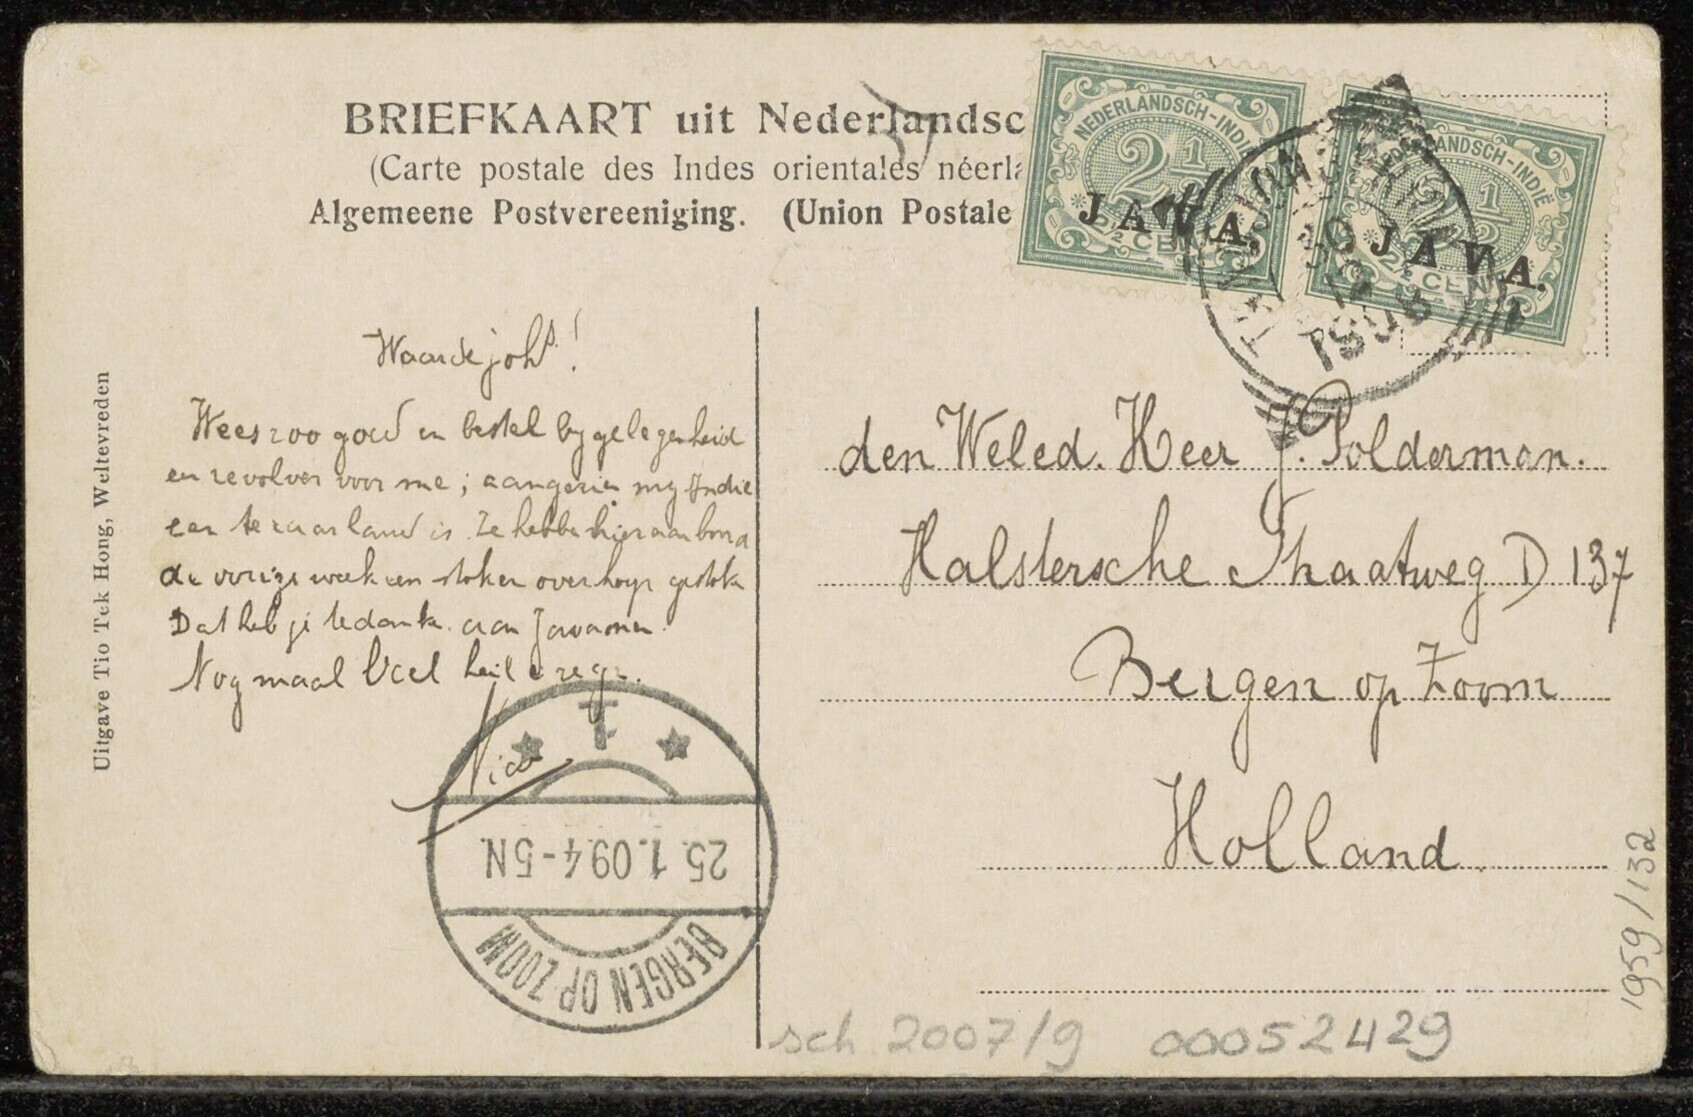 BRIEFKAART uit Nederlandsc
(Carte postale des Indes orientales néerla
Algemeene Postvereeniging. (Union Postale
NEDERLANDSCH-INDIE
2½
JAVA.
½ CEN
LANDSCH-INDIË
½
JAVA.
2½ CEN
30
12
1908
Waarde joh!
Wees zoo goed en bestel by gelegenheid
een revolver voor me; aangezien my Indie
een te raar land is. Ze hebbe hier aan boord
de vorige week een stoker overhoop gestoke
Dat heb je te danke aan Javanen.
Nog maal Veel heil e zege.
Nico
den Weled. Heer J. Polderman.
Halstersche Straatweg D 137
Bergen op Zoom
Holland
Uitgave Tio Tek Hong, Weltevreden
1
25.1.09.4-5N
BERGEN OP ZOOM
1959/132
sch 2007/9 00052429